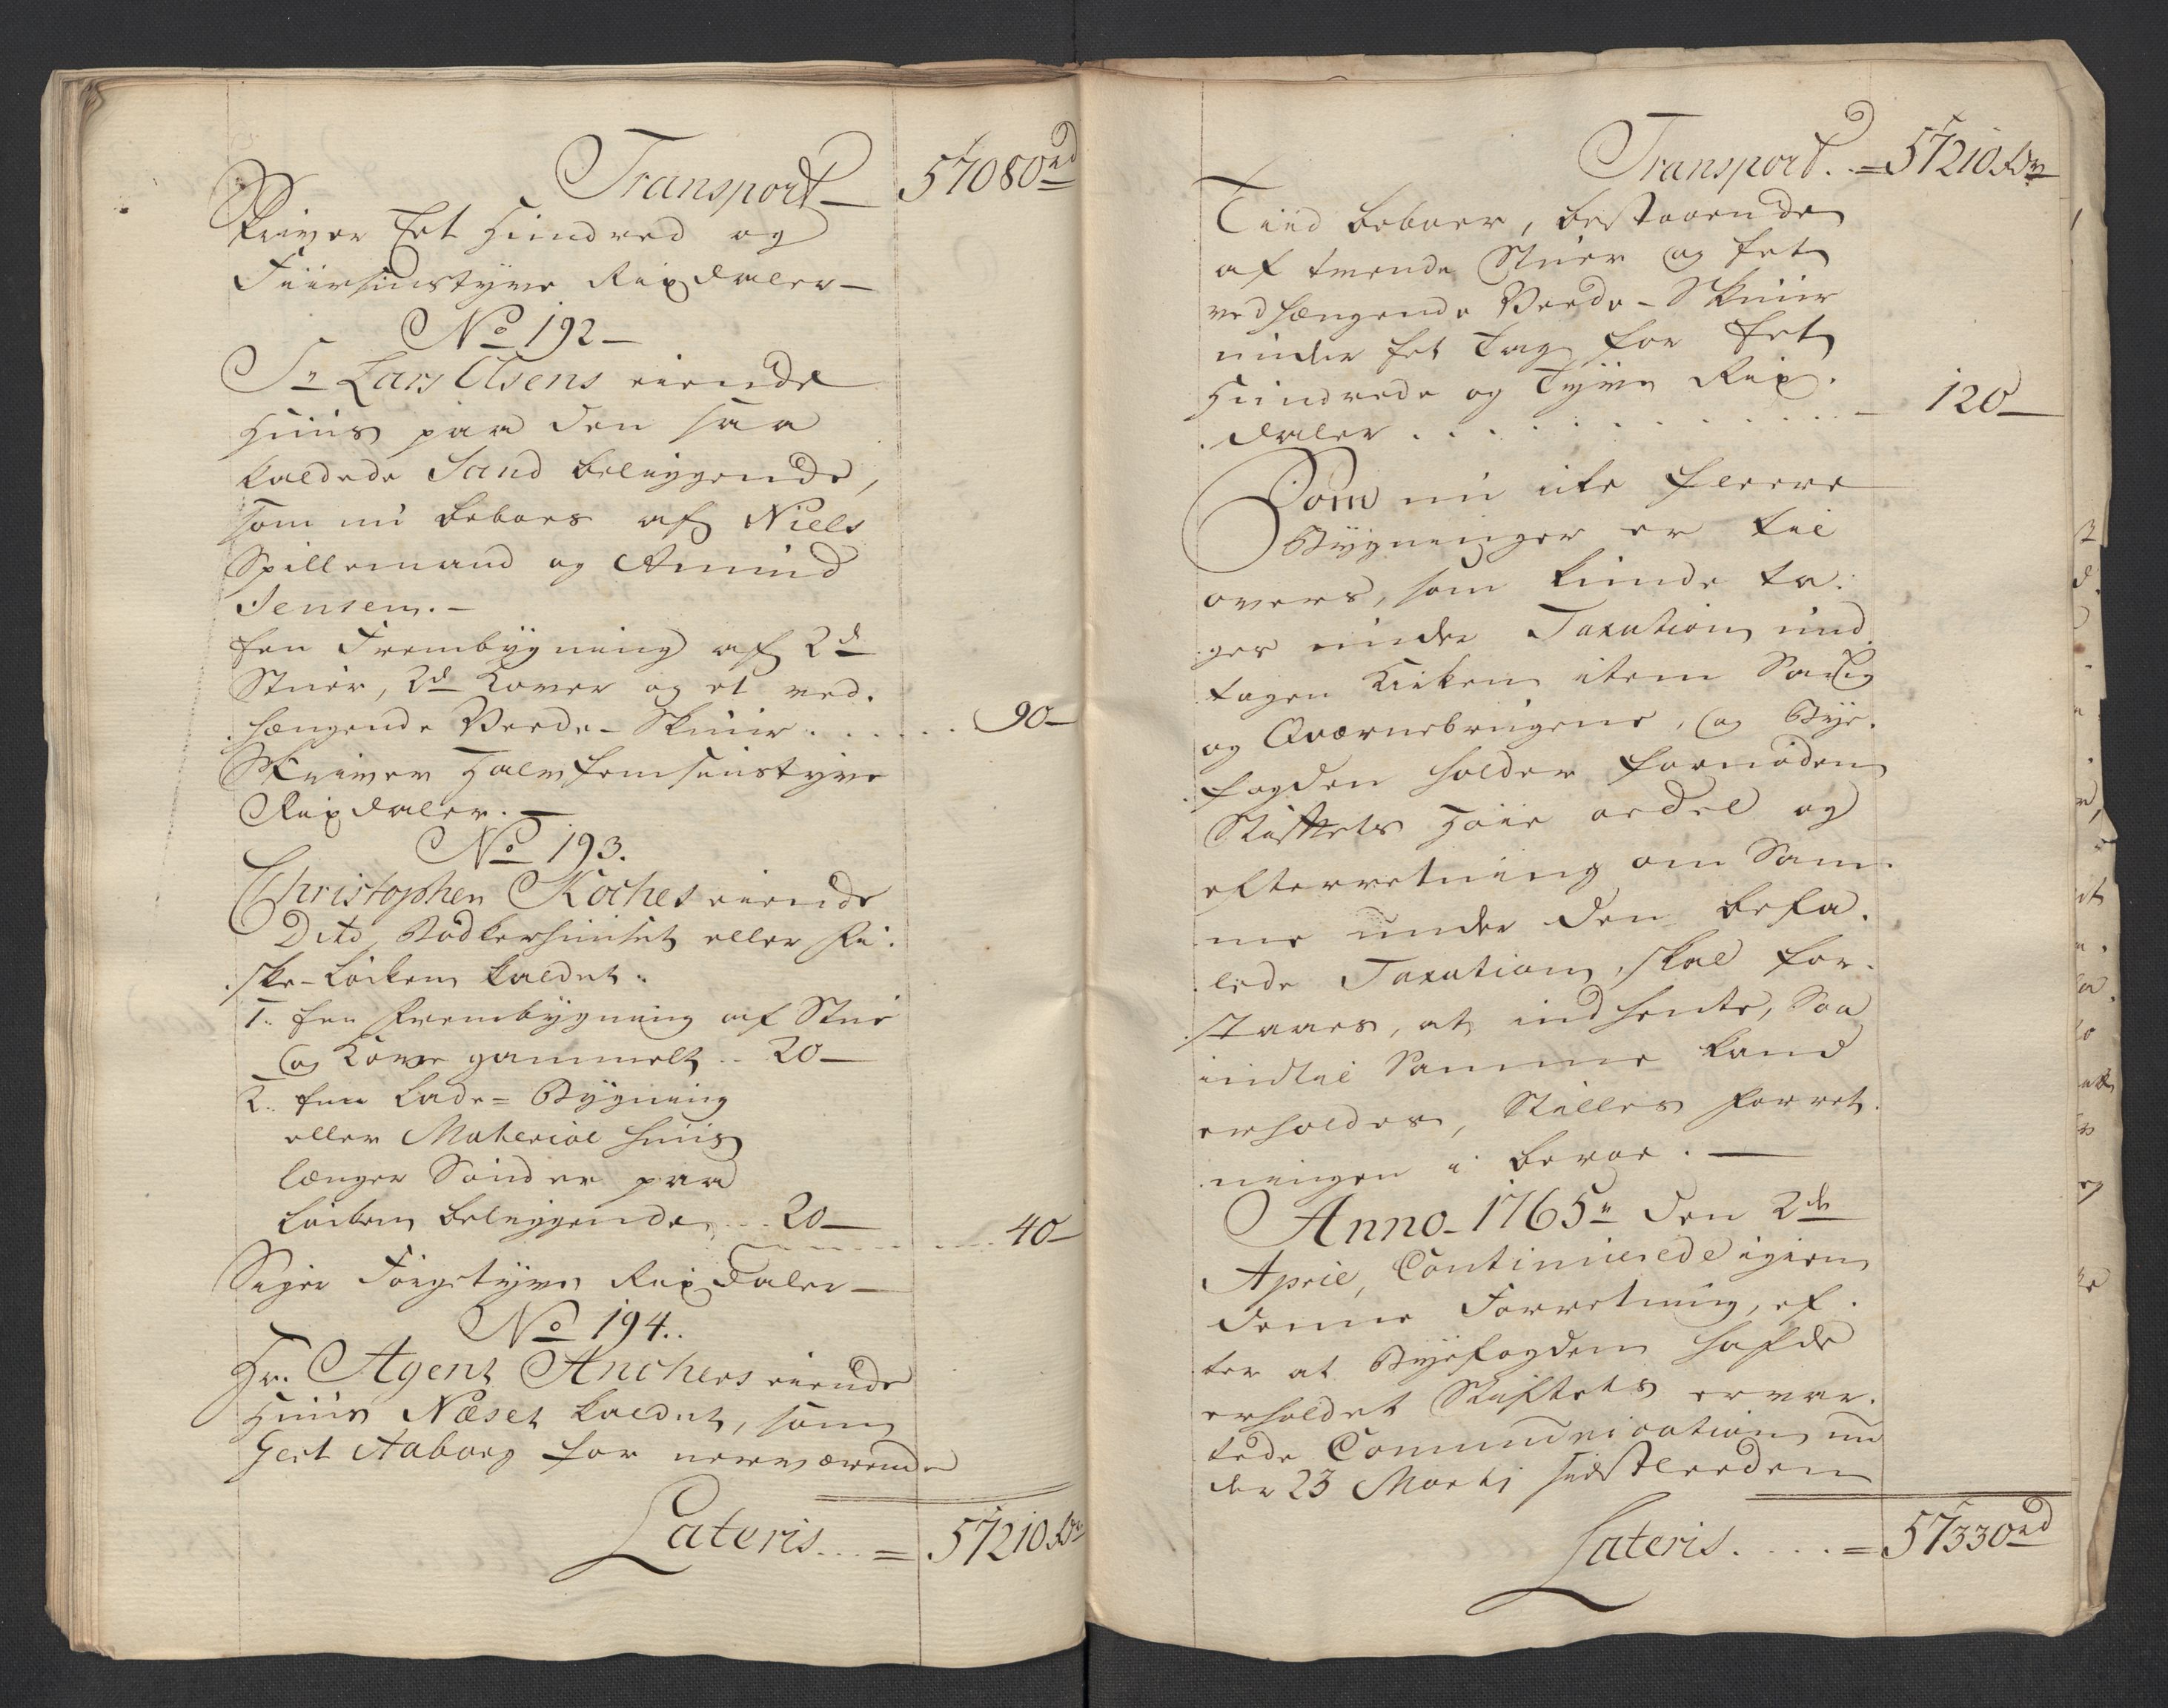 Transport — 57080rd
Skriver Eet Hundred og
Fiirsinstyve Rixdaler —
No 192 —
Sr Lars Olsens eiende
Huus paa den saa
kaldede Sand beliggende,
som nu beboes af Niels
Spillemand og Amund
Jensen. —
Een Frembygning af 2de
Stuer, 2de Kover og et ved-
hængende Veede-Skuur . . . . . . 90 —
Skriver Halvfemsinstyve
Rixdaler. —
No 193.
Christopher Koches eiende
Dito, Bödkerhuuset eller Fi-
ske-Löcken kaldet.
1. Een Frembygning af Stue
og Kove gammelt .. 20 —
2. Een Lade- Bygning
eller Material Huus
længer Sönder paa
Löcken beliggende ... 20 —
40 —
Siger Förgetyve Rixdaler —
No 194..
Hr. Agent Anchers eiende
Huus Næset kaldet, som
Gert Aaborg for nerværende
Lateris... = 57210 Rdr
Transport. . = 57210 Rdr
Tiid beboer, bestaaende
af tvende Stuer og Eet
vedhængende Veede-Skuur
under Eet Tag for Eet
Hundrede og Tyve Rix-
daler . . . . . . . . . . . — 120 —
Som nu ike fleere
Bygninger er til
overs, som kunde ta-
ges under Taxation und-
tagen Kirken item Saug
og Qværnebrugene, og Bye-
fogden holder fornöden
Stiftets Höie ordre og
efterretning om Sam-
me under den befa-
lede Taxation, skal for-
staaes, at indhente, Saa
indtil Samme kand
erholdes, Stilles Forret-
ningen i beroe. —
Anno 1765 den 2de
April, Continuerede igien
denne Forretning, ef-
ter at Byefogden hafde
erholdet Stiftets ervar-
tede Communication un-
der 23 Martj sidstleeden
Lateris. . . . . = 57330rd